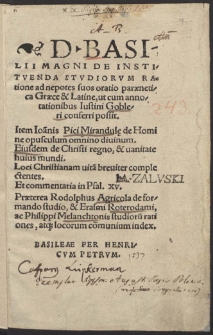 D. BASI-
LII MAGNI DE INSTI
TVENDA STVDIORVM RA
tione ad nepotes suos oratio paræneti-
ca Græce & Latine, ut cum anno-
tationibus Iustini Goble-
ri conferri possit.
Item Ioānis Pici Mirandulę de Homi
ne opusculum omnino diuinum.
Eiusdem de Christi regno, & uanitate
huius mundi.
Loci Christianam uitā breuiter comple
ctentes.
I. A. ZALVSKI
Et commentaria in Psal. XV.
Præterea Rodolphus Agricola de for-
mando studio, & Erasmi Roterodami,
ac Philippi Melanchtonis studiorū rati
ones, atq; locorum cōmunium index.
BASILEAE PER HENRI
CVM PETRVM.
1537